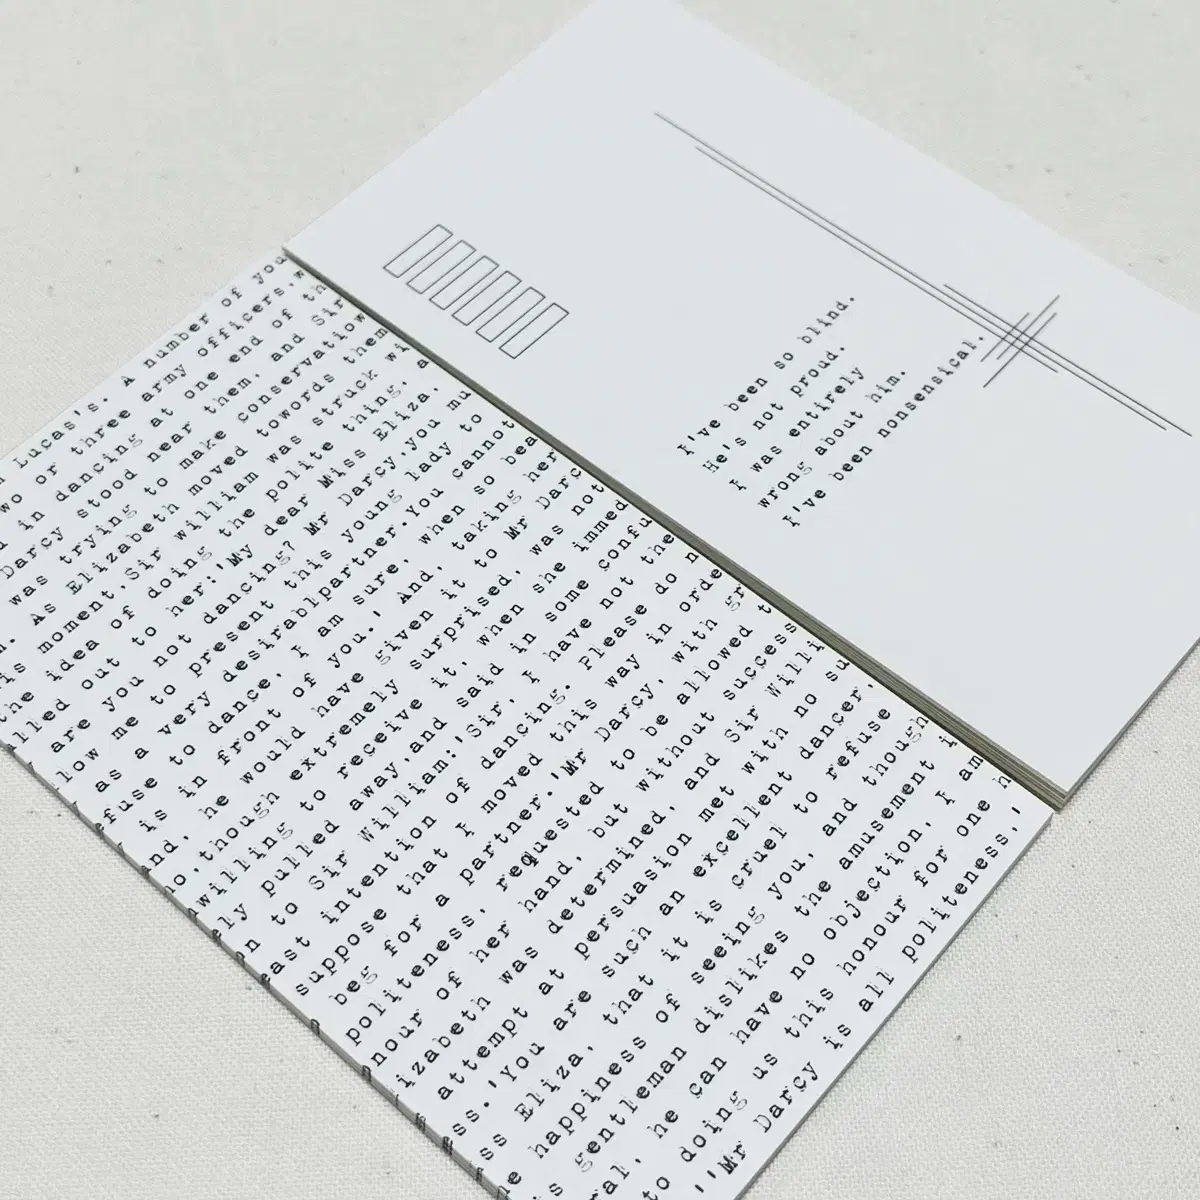 I've been so blind.
He's not proud.
I was entirely
wrong about him.
I've been nonsensical.
Lucas's. A number of you
two or three army officers,w
d in dancing at one end of th
Darcy stood near them, and Sir
was trying to make conservation
. As Elizabeth moved towords them
is moment,Sir william was struck wi
the idea of doing the polite thing, a
lled out to her:'My dear Miss Eliza,
are you not dancing? Mr Darcy,you mu
low me to present this young lady to
as a very desirablpartner.You cannot
efuse to dance, I am sure, when so bea
is in front of you.' And, taking her
and, he would have given it to Mr Darc
ho,though extremely surprised, was not
willing to receive it, when she immed
ly pulled away,and said in some confu
n to Sir William:'Sir, I have not the
east intention of dancing. Please do n
suppose that I moved this way in orde
beg for a partner.'Mr Darcy, with gr
politeness, requested to be allowed t
nour of her hand, but without success
izabeth was determined, and Sir Willi
attempt at persuasion met with no su
ss.'You are such an excellent dancer,
ss Eliza, that it is cruel to refuse
e happiness of seeing you, and though
s gentleman dislikes the amusement i
ral, he can have no objection, I am
to doing us this honour for one h
''Mr Darcy is all politeness,'